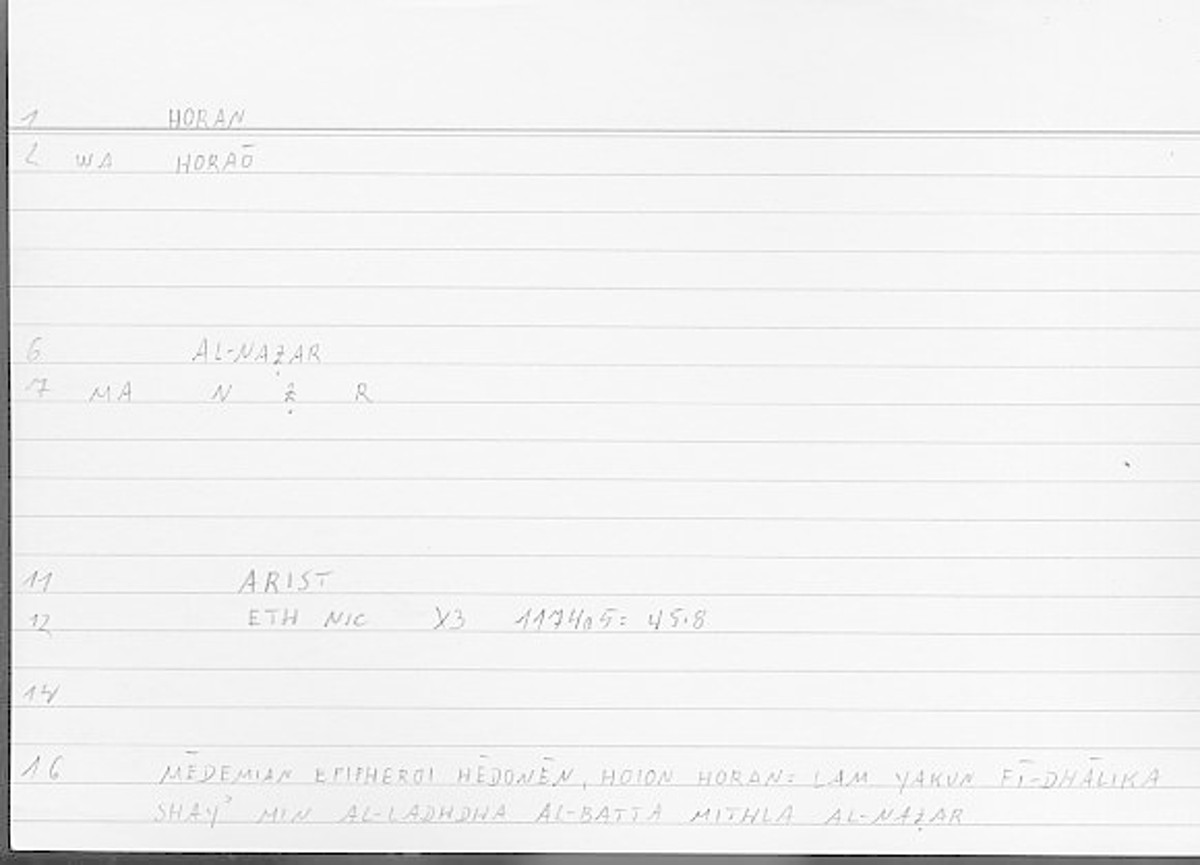 1 HORAN
2 WA HORAŌ
6 AL-NAẒAR
7 MA N Ẓ R
11 ARIST
12 ETH NIC X3 1174a5: 45.8
14
16 MĒDEMIAN EPIPHEROI HĒDONĒN, HOION HORAN: LAM YAKUN FĪ-DHĀLIKA
SHAYʾ MIN AL-LADHDHA AL-BATTA MITHLA AL-NAẒAR